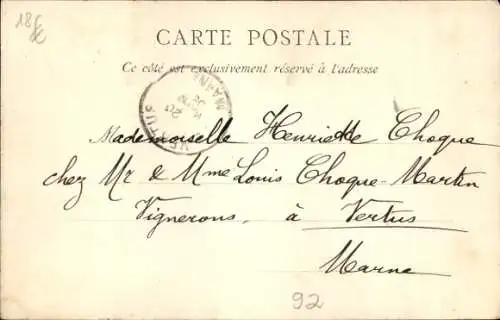 18€
CARTE POSTALE
Ce côté est exclusivement réservé à l'adresse
VERTUS
MARNE
20
Mademoiselle Henriette Choque
chez Mr & Mme Louis Choque-Martin
Vignerons, à Vertus
Marne
92